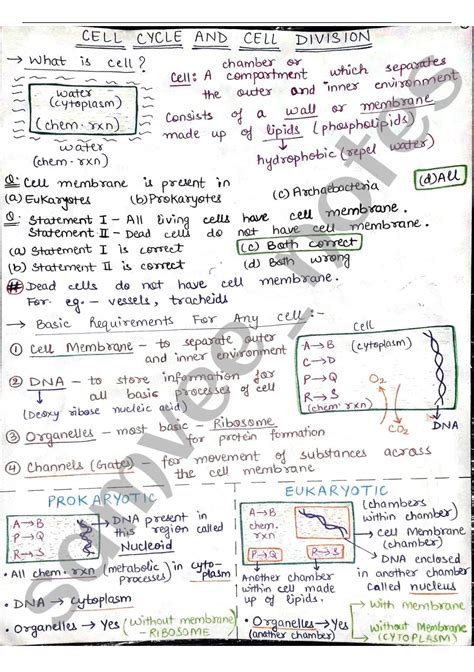 CELL CYCLE AND CELL DIVISION
→ What is cell?
water
(cytoplasm)
(chem. rxn)
water
(chem. rxn)
chamber or
Cell: A compartment which separates
the outer and inner environment
Consists of a wall or membrane
made up of lipids (phospholipids)
hydrophobic (repel water)
Q: Cell membrane is present in
(a) Eukaryotes (b) Prokaryotes (c) Archaebacteria (d) All
Q: Statement I – All living cells have cell membrane.
Statement II – Dead cells do not have cell membrane.
(a) Statement I is correct (c) Both correct
(b) Statement II is correct (d) Both wrong
# Dead cells do not have cell membrane.
For eg. – vessels, tracheids
→ Basic Requirements For Any cell :-
① Cell Membrane – to separate outer
and inner environment
② DNA – to store information for
all basic processes of cell
(Deoxy ribose nucleic acid)
③ Organelles – most basic – Ribosome
for protein formation
④ Channels (Gates) – for movement of substances across
the cell membrane
Cell
A→B (cytoplasm)
C→D
P→Q
R→S
(chem. rxn)
O2
CO2
DNA
PROKARYOTIC
A→B
P→Q
R→S
→ DNA present in
this region called
Nucleoid
• All chem. rxn (metabolic processes) in cytoplasm
• DNA → cytoplasm
• Organelles → Yes (without membrane – RIBOSOME)
EUKARYOTIC
(chambers
within chamber)
A→B
chem.
rxn
P→Q R→S
→ cell Membrane
(chamber)
→ DNA enclosed
in another chamber
called nucleus
Another chamber
within cell made
up of lipids.
Another
chamber
• Organelles → Yes
(another chamber)
With membrane
Without membrane
(CYTOPLASM)
samvee_notes